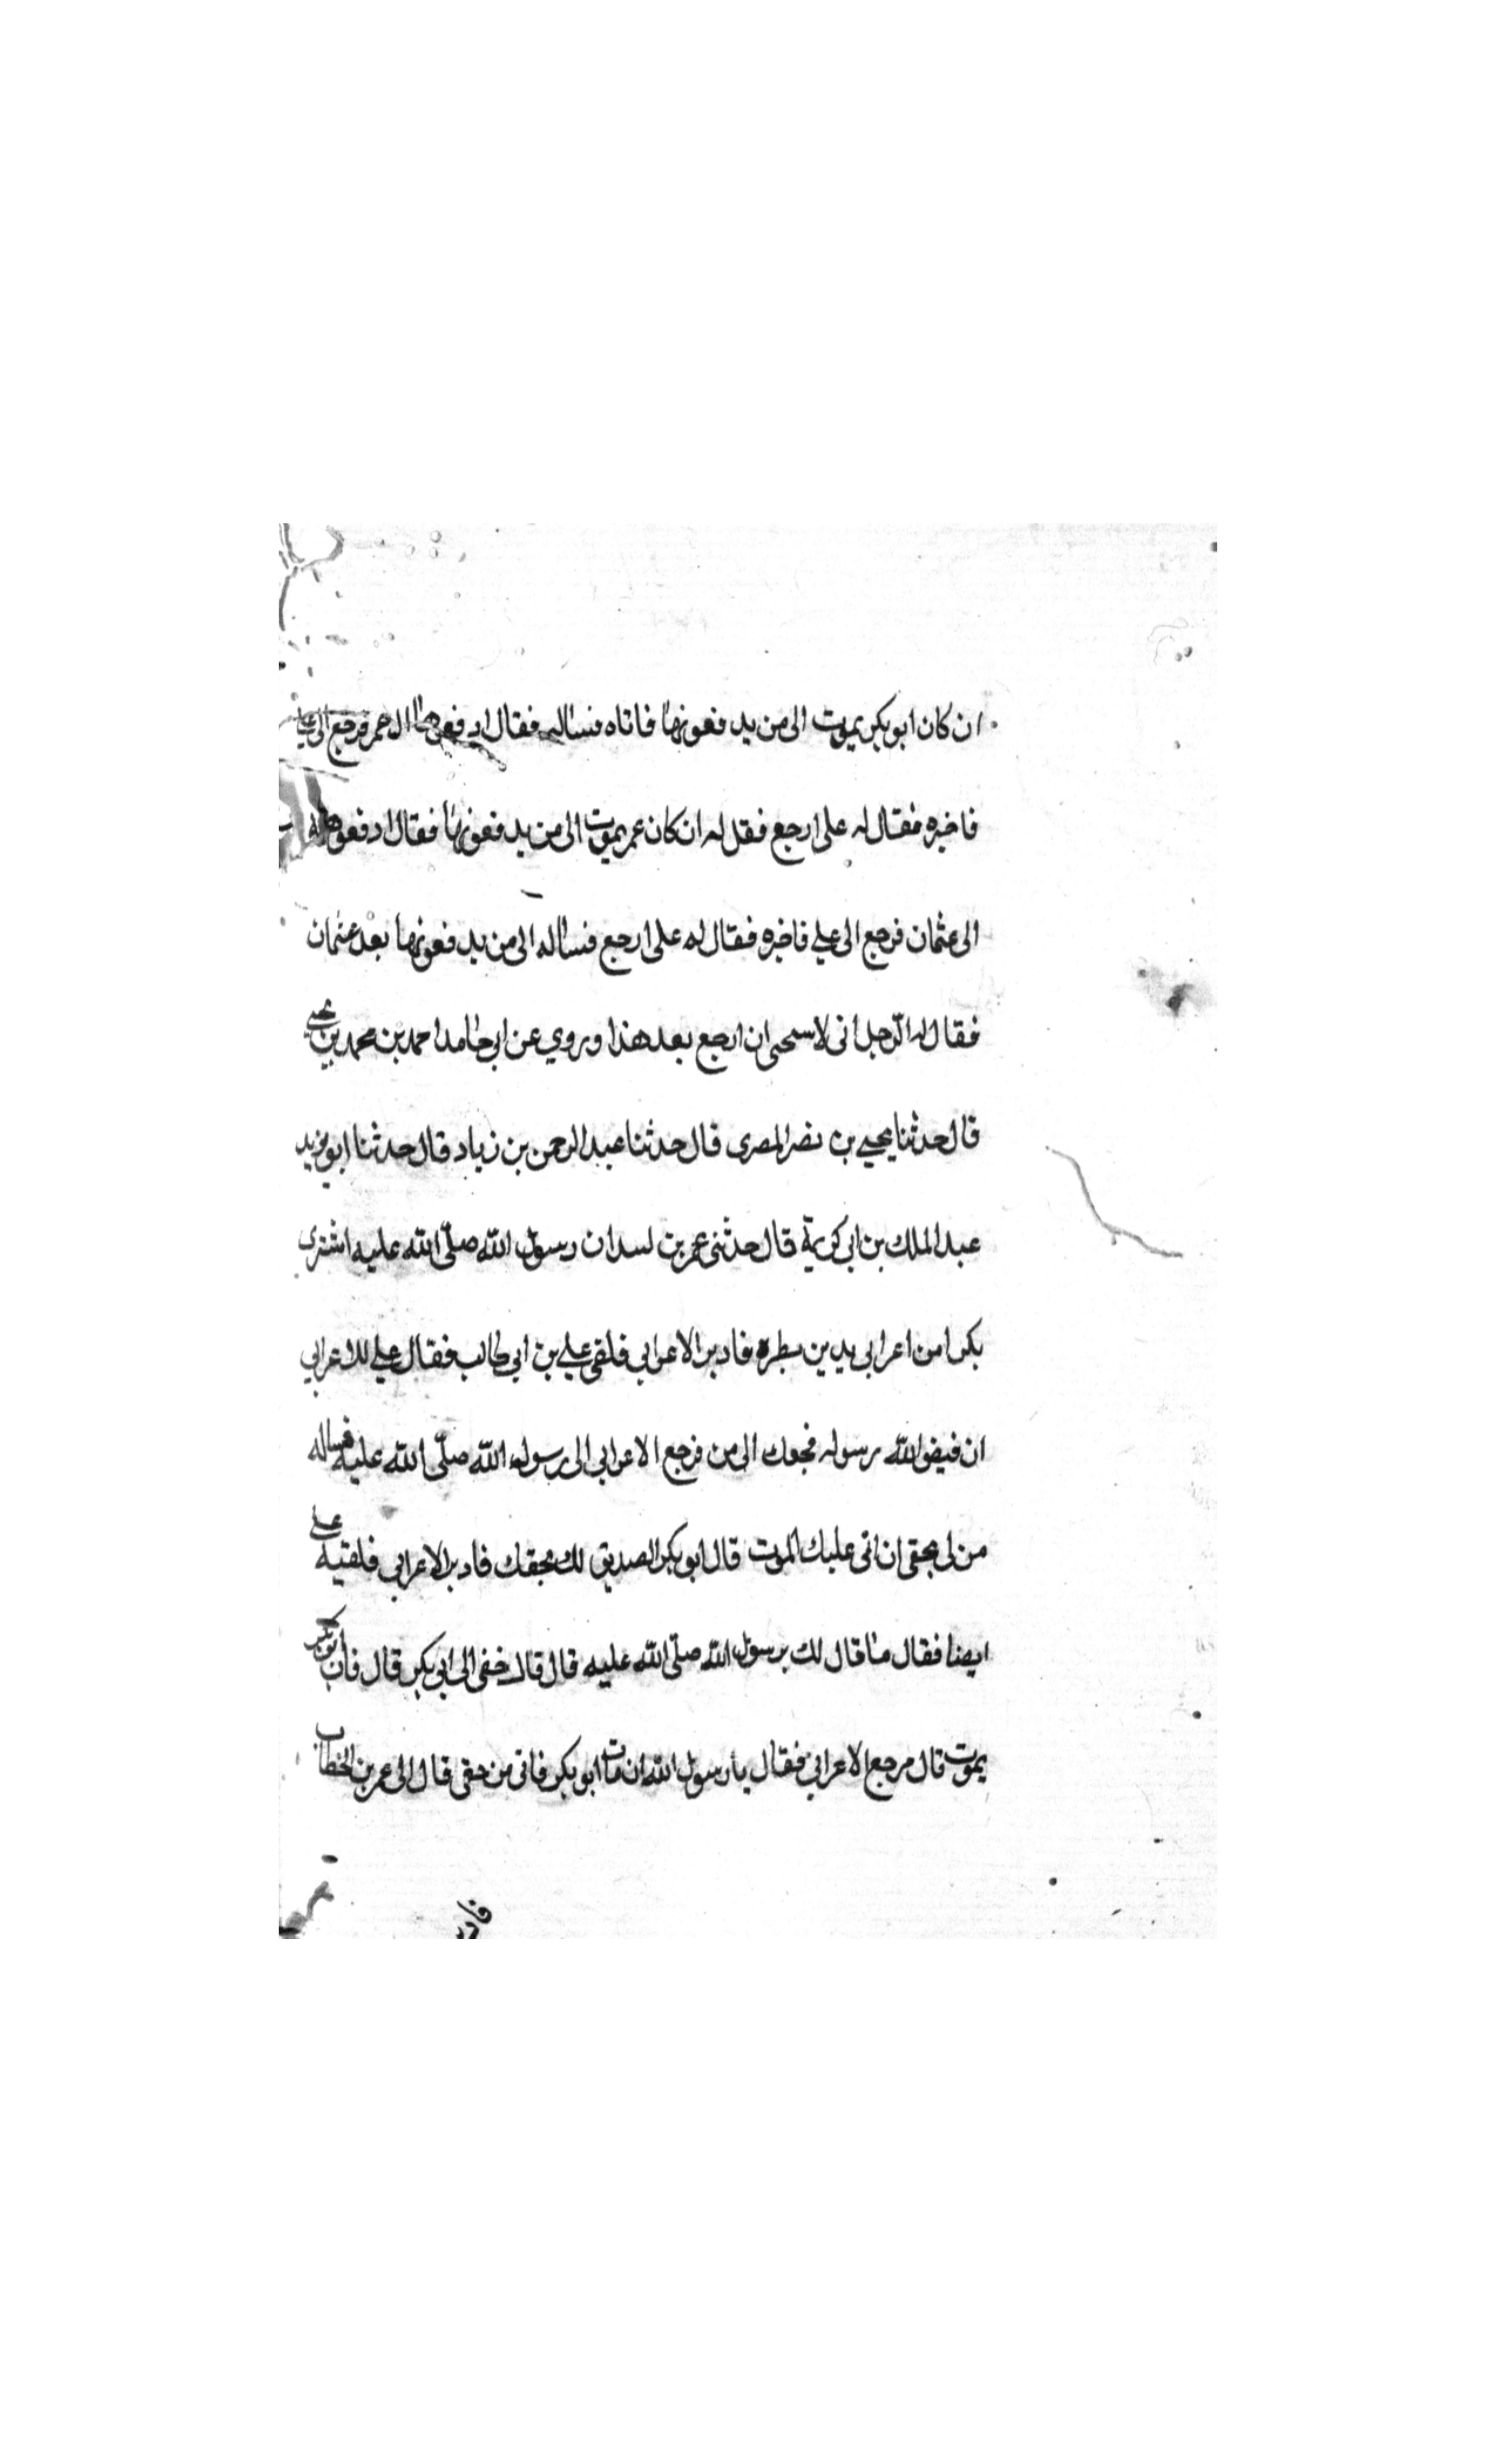 ان كان ابو بكر يموت الى من يدفعونها فاتاه فساله فقال ادفعوها الى عمر فرجع الى علي
فاخبره فقال له على ارجع فقل له ان كان عمر يموت الى من يدفعونها فقال ادفعوها
الى عثمان فرجع الى علي فاخبره فقال له على ارجع فساله الى من يدفعونها بعد عثمان
فقال له الرجل انى لاستحى ان ارجع بعد هذا وروي عن ابي حامد احمد بن محمد بن يحيى
قال حدثنا يحيى بن نصر المصرى قال حدثنا عبد الرحمن بن زياد قال حدثنا ابو يزيد
عبد الملك بن ابي كريمة قال حدثنى عمر بن ان رسول الله صلى الله عليه اشترى
بكرا من اعرابي بدين فادبر الاعرابي فلقى علي بن ابي طالب فقال علي للاعرابي
ان قبض الله رسوله فحقك الى من فرجع الاعرابي الى رسول الله صلى الله عليه فساله
من لى بحقى ان اتى عليك الموت قال ابو بكر الصديق لك بحقك فادبر الاعرابي فلقيه علي
ايضا فقال ما قال لك رسول الله صلى الله عليه قال قال حقى الى ابي بكر قال فان ابو بكر
يموت قال فرجع الاعرابي فقال يا رسول الله ان مات ابو بكر فاتى من حقى قال الى عمر بن الخطاب
فادبر